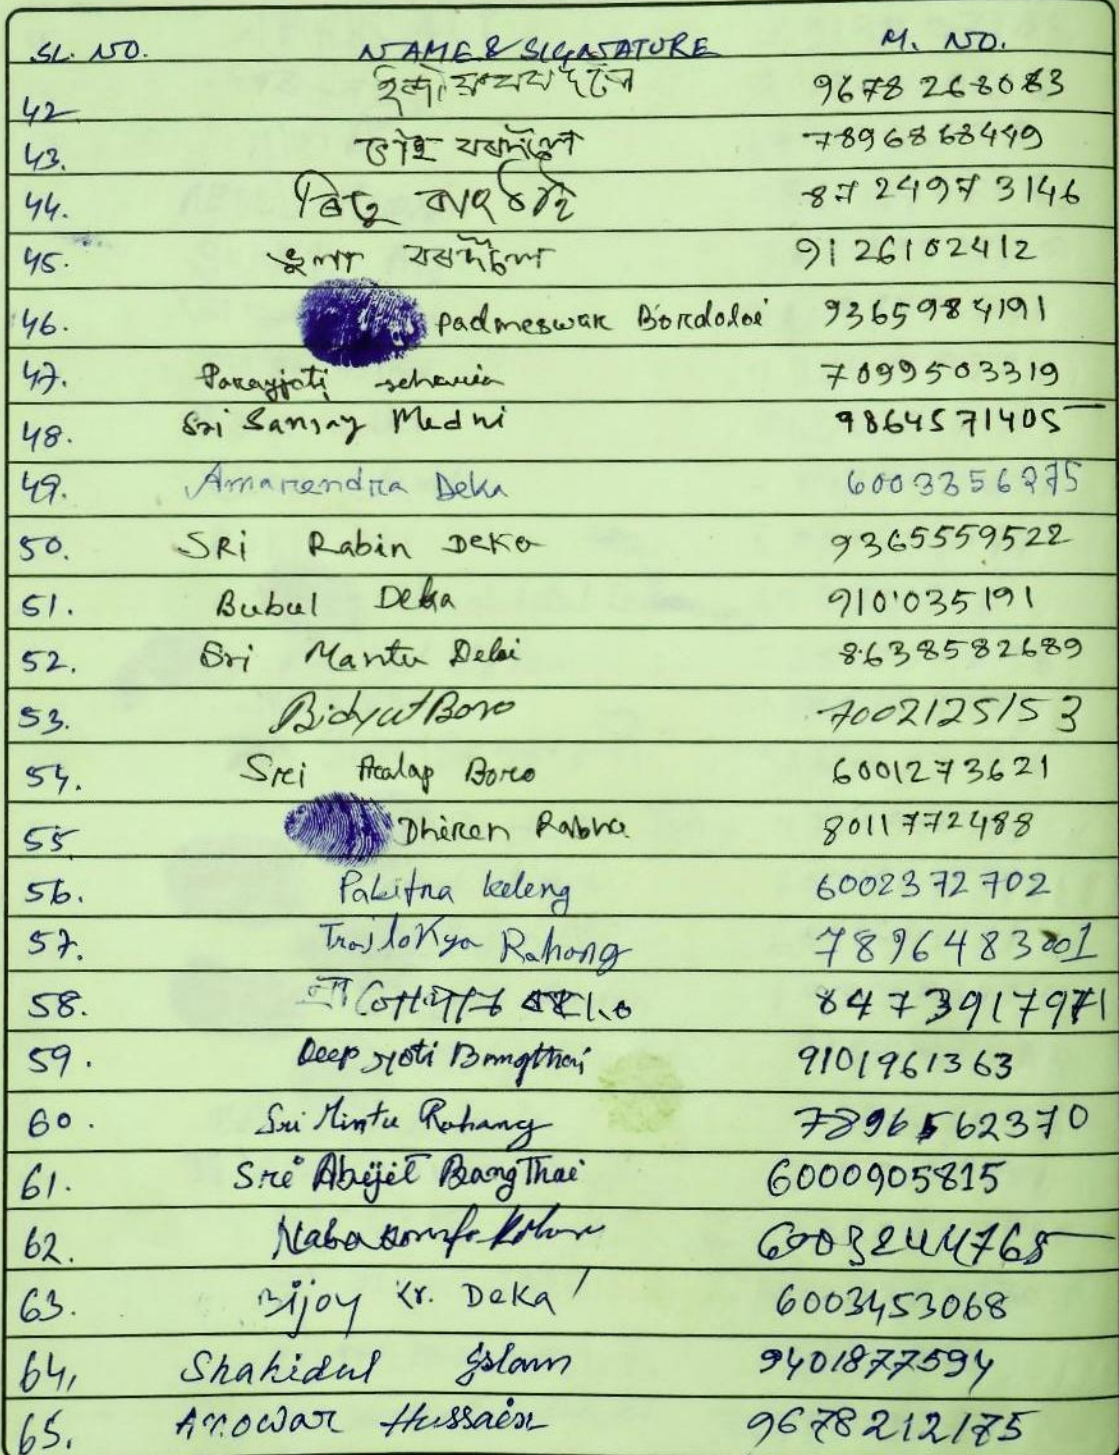 SL. NO. NAME & SIGNATURE M. NO.
42 9678268083
43. যৰদলৈ 7896868449
44. ৰিতু 8724973146
45. ভুলা যৰদলৈ 9126102412
46. Padmeswar Bordoloi 9365984191
47. 7099503319
48. Sri Sanjay Medhi 9864571405
49. Amarendra Deka 6003356275
50. SRi Rabin Deka 9365559522
51. Bubul Deka 910'035191
52. Sri Mantu Deli 8638582689
53. Bidyut Boro 7002125153
54. Sri Aalap Boro 6001273621
55 Dhiren Rabha 8011772488
56. Pabitra Keleng 6002372702
57. TrailoKya Rahang 7896483001
58. 8473917971
59. Deepjyoti Bangthai 9101961363
60. Sri Mintu Rahang 7896562370
61. Sri Abijit BangThai 6000905815
62. Naba
63. Bijoy Kr. Deka 6003453068
64, Shahidul Islam 9401877594
65. Anowar Hussain 9678212175